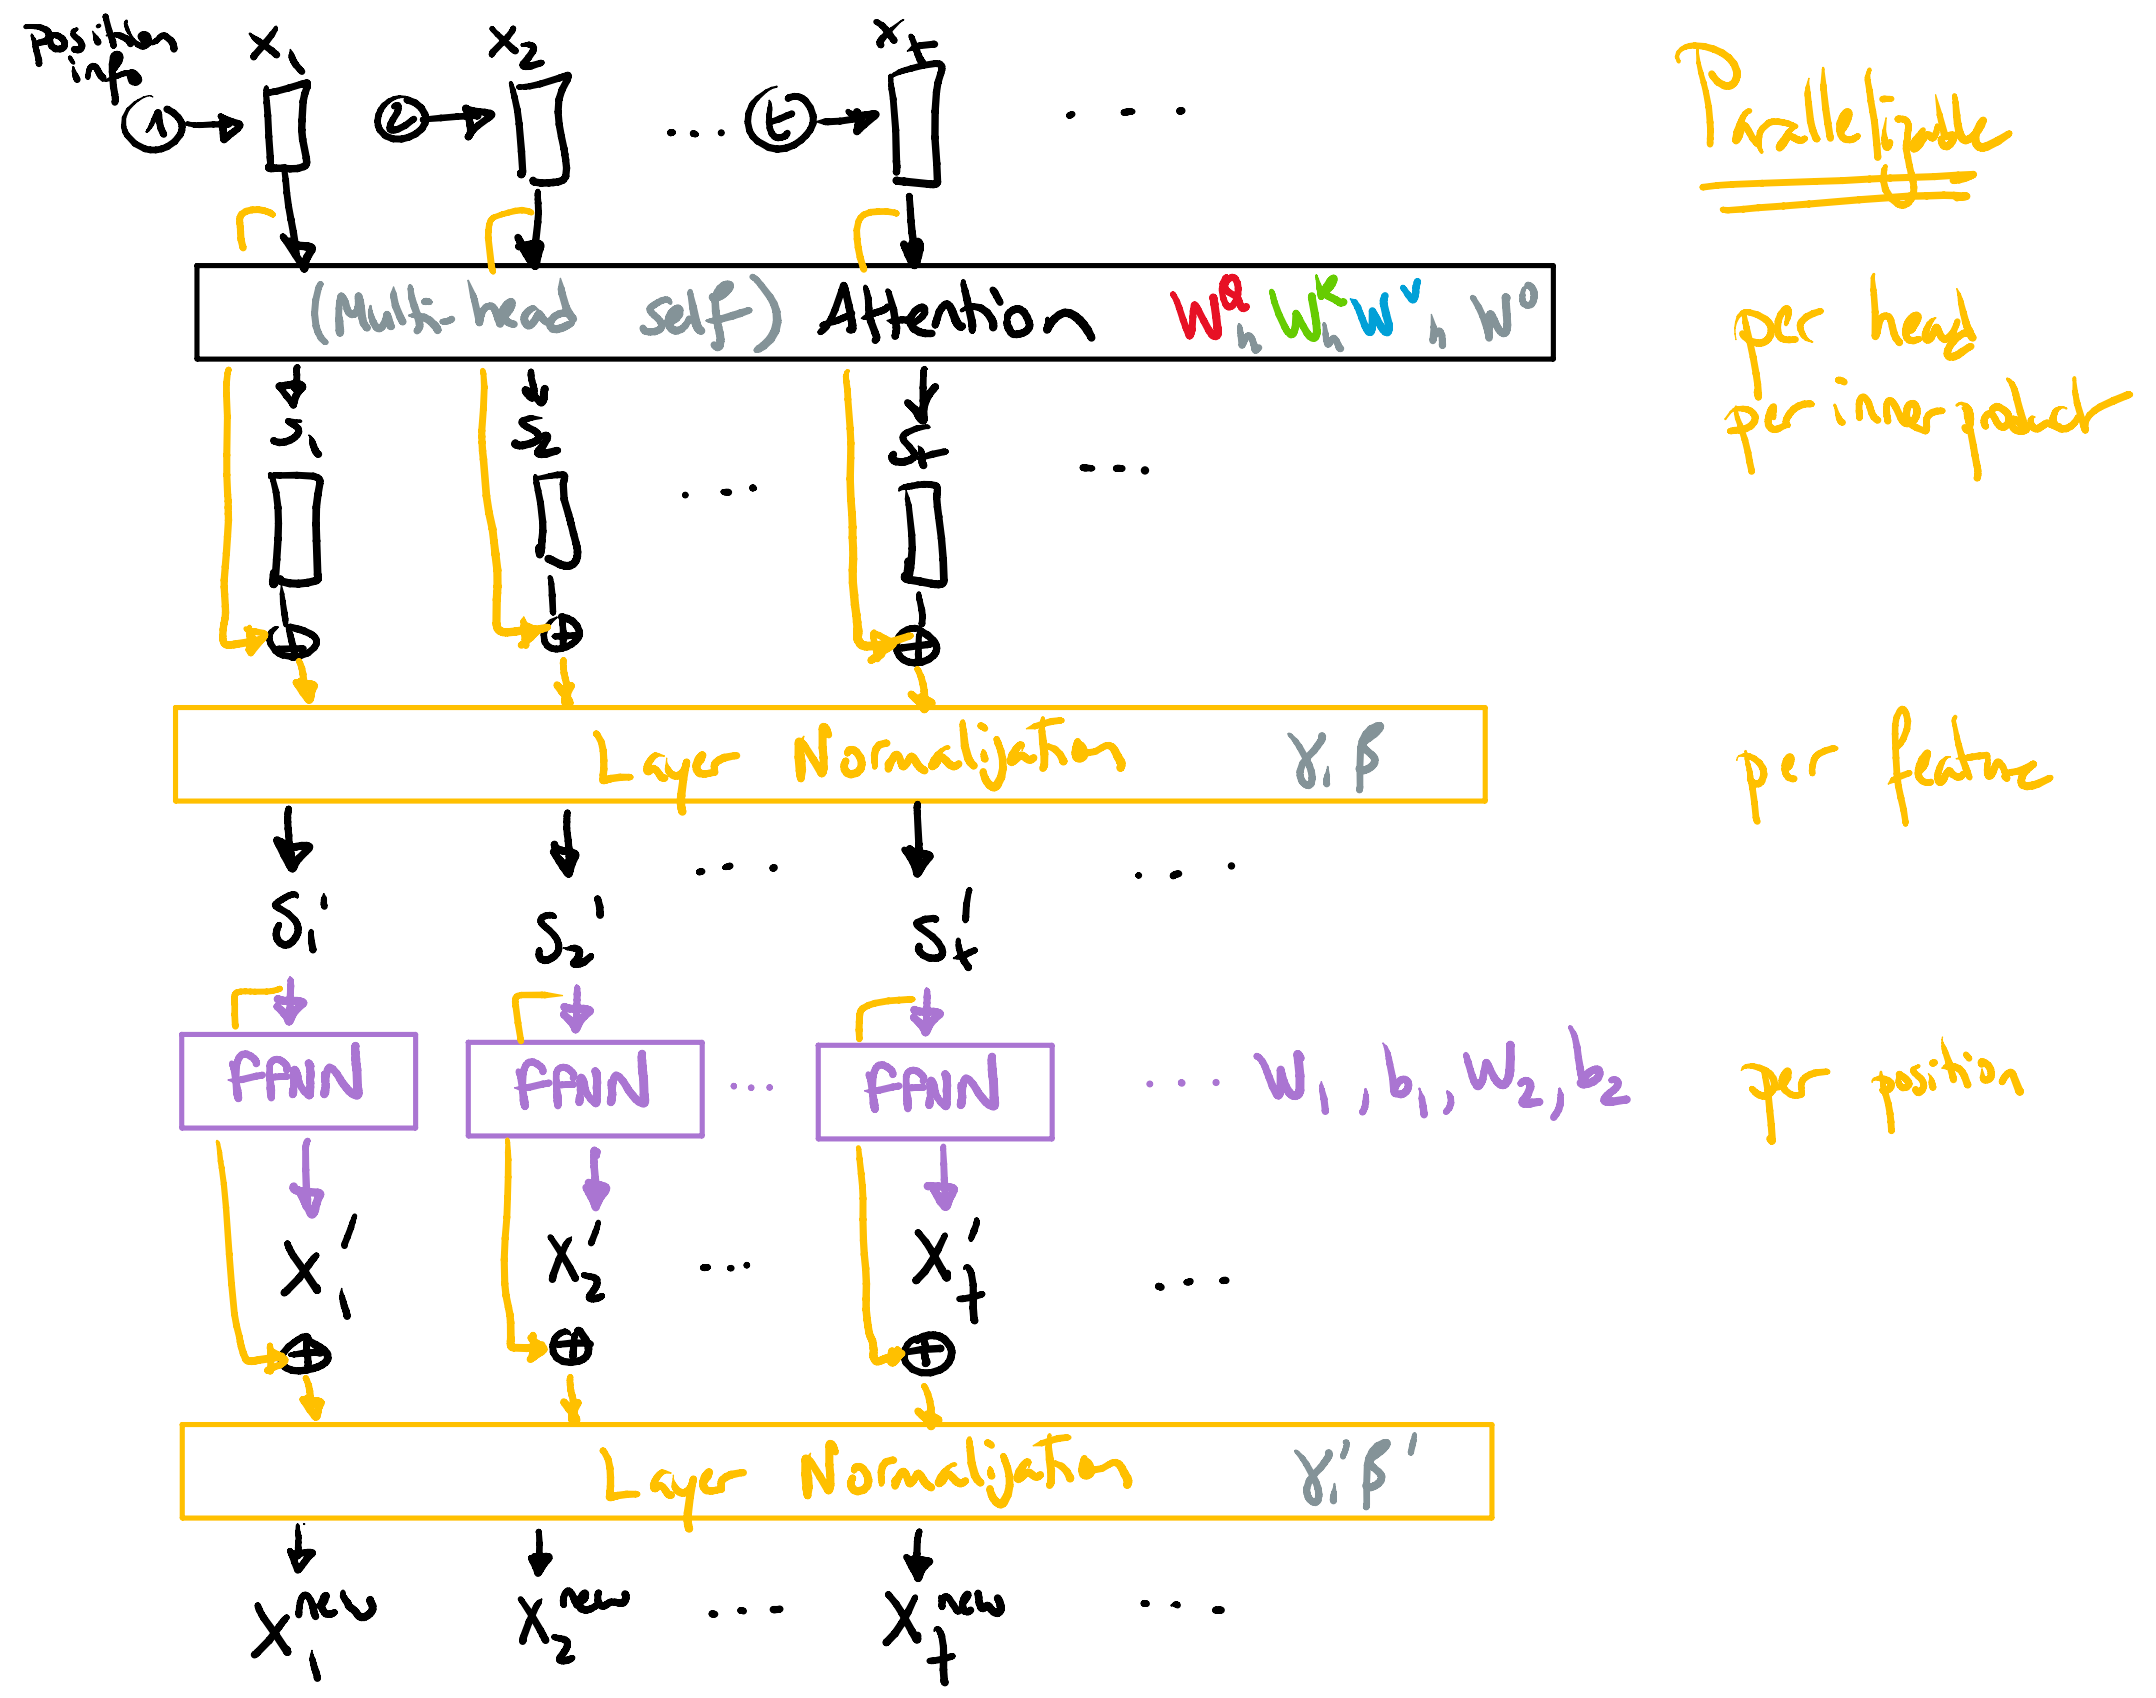 Position info
x₁ x₂ xₜ
1 2 ... t ...
Parallelizable
(Multi-head self) Attention W^Q_h W^K_h W^V_h, W^O
per head
per inner product
s₁ s₂ ... sₜ ...
Layer Normalization γ, β
per feature
s₁' s₂' ... sₜ' ...
FFNN FFNN ... FFNN ... W₁, b₁, W₂, b₂
per position
x₁' x₂' ... xₜ' ...
Layer Normalization γ', β'
x₁^new x₂^new ... xₜ^new ...